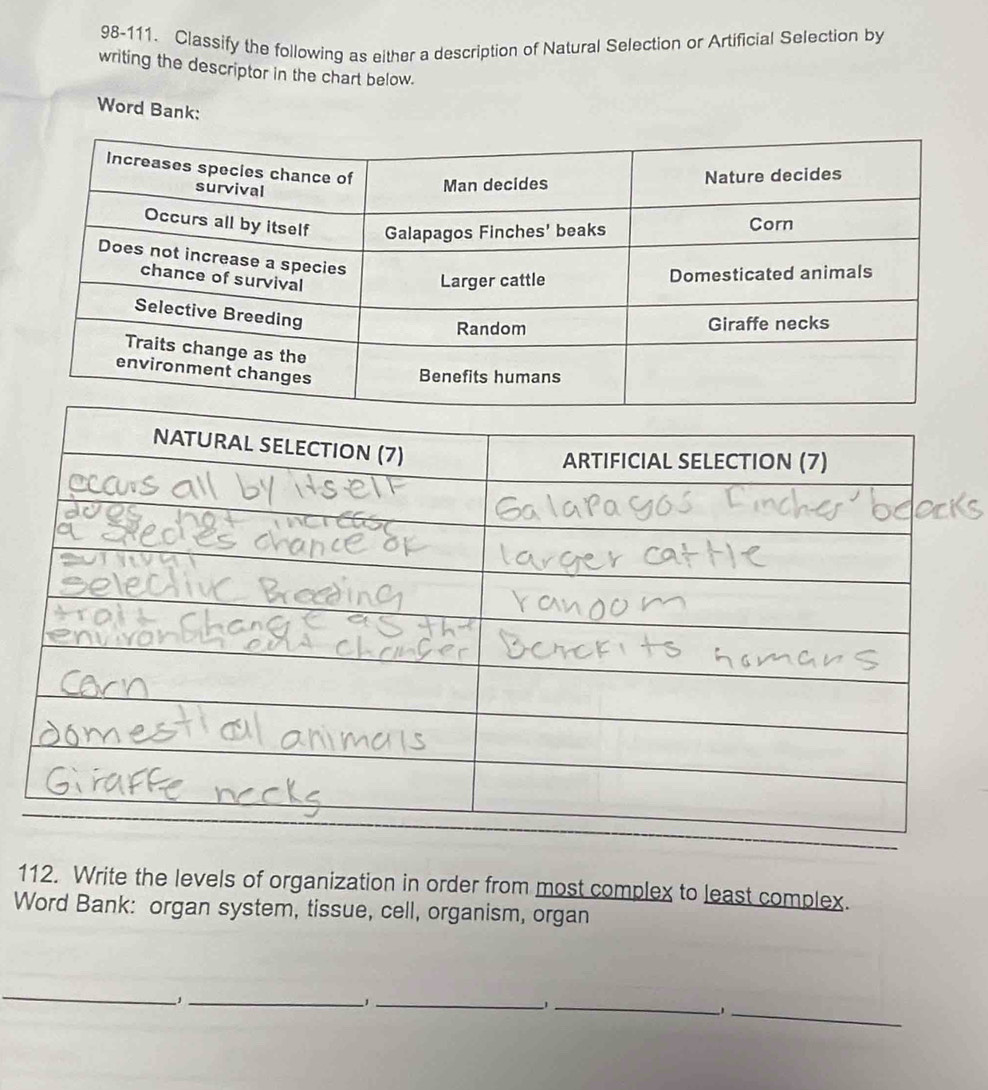 98-111. Classify the following as either a description of Natural Selection or Artificial Selection by
writing the descriptor in the chart below.
Word Bank:
Increases species chance of
survival
Man decides
Nature decides
Occurs all by itself
Galapagos Finches' beaks
Corn
Does not increase a species
chance of survival
Larger cattle
Domesticated animals
Selective Breeding
Random
Giraffe necks
Traits change as the
environment changes
Benefits humans
NATURAL SELECTION (7)
ARTIFICIAL SELECTION (7)
occurs all by itself
Galapagos Fincher' beacks
does not increase
a speches chance of
survival
larger cattle
selective Breeding
random
trait change as the
Benefits homans
corn
animals
Giraffe necks
112. Write the levels of organization in order from most complex to least complex.
Word Bank: organ system, tissue, cell, organism, organ